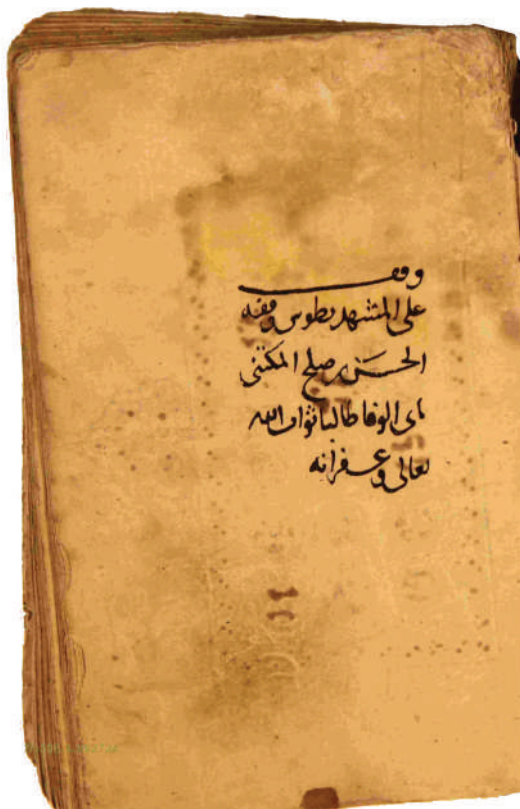 وقف
على المشهد بطوس وقفه
الحسن بن صلح المكتنى
بابى الوفا طالبا ثواب الله
تعالى وغفرانه